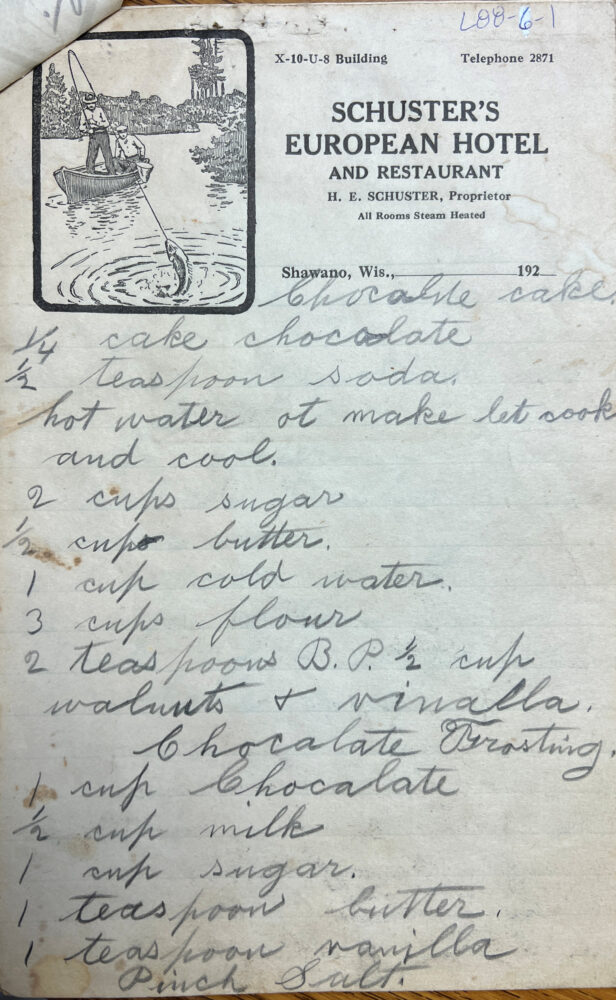 LOO-6-1
X-10-U-8 Building Telephone 2871
SCHUSTER'S
EUROPEAN HOTEL
AND RESTAURANT
H. E. SCHUSTER, Proprietor
All Rooms Steam Heated
Shawano, Wis., 192
Chocalate cake
1/4 cake chocolate
1/2 teaspoon soda.
hot water ot make let cook
and cool.
2 cups sugar
1/2 cup butter.
1 cup cold water.
3 cups flour
2 teaspoons B. P. 1/2 cup
walnuts + vinalla.
Chocalate Frosting.
1 cup Chocalate
1/2 cup milk
1 cup sugar.
1 teaspoon butter.
1 teaspoon vanilla
Pinch Salt.